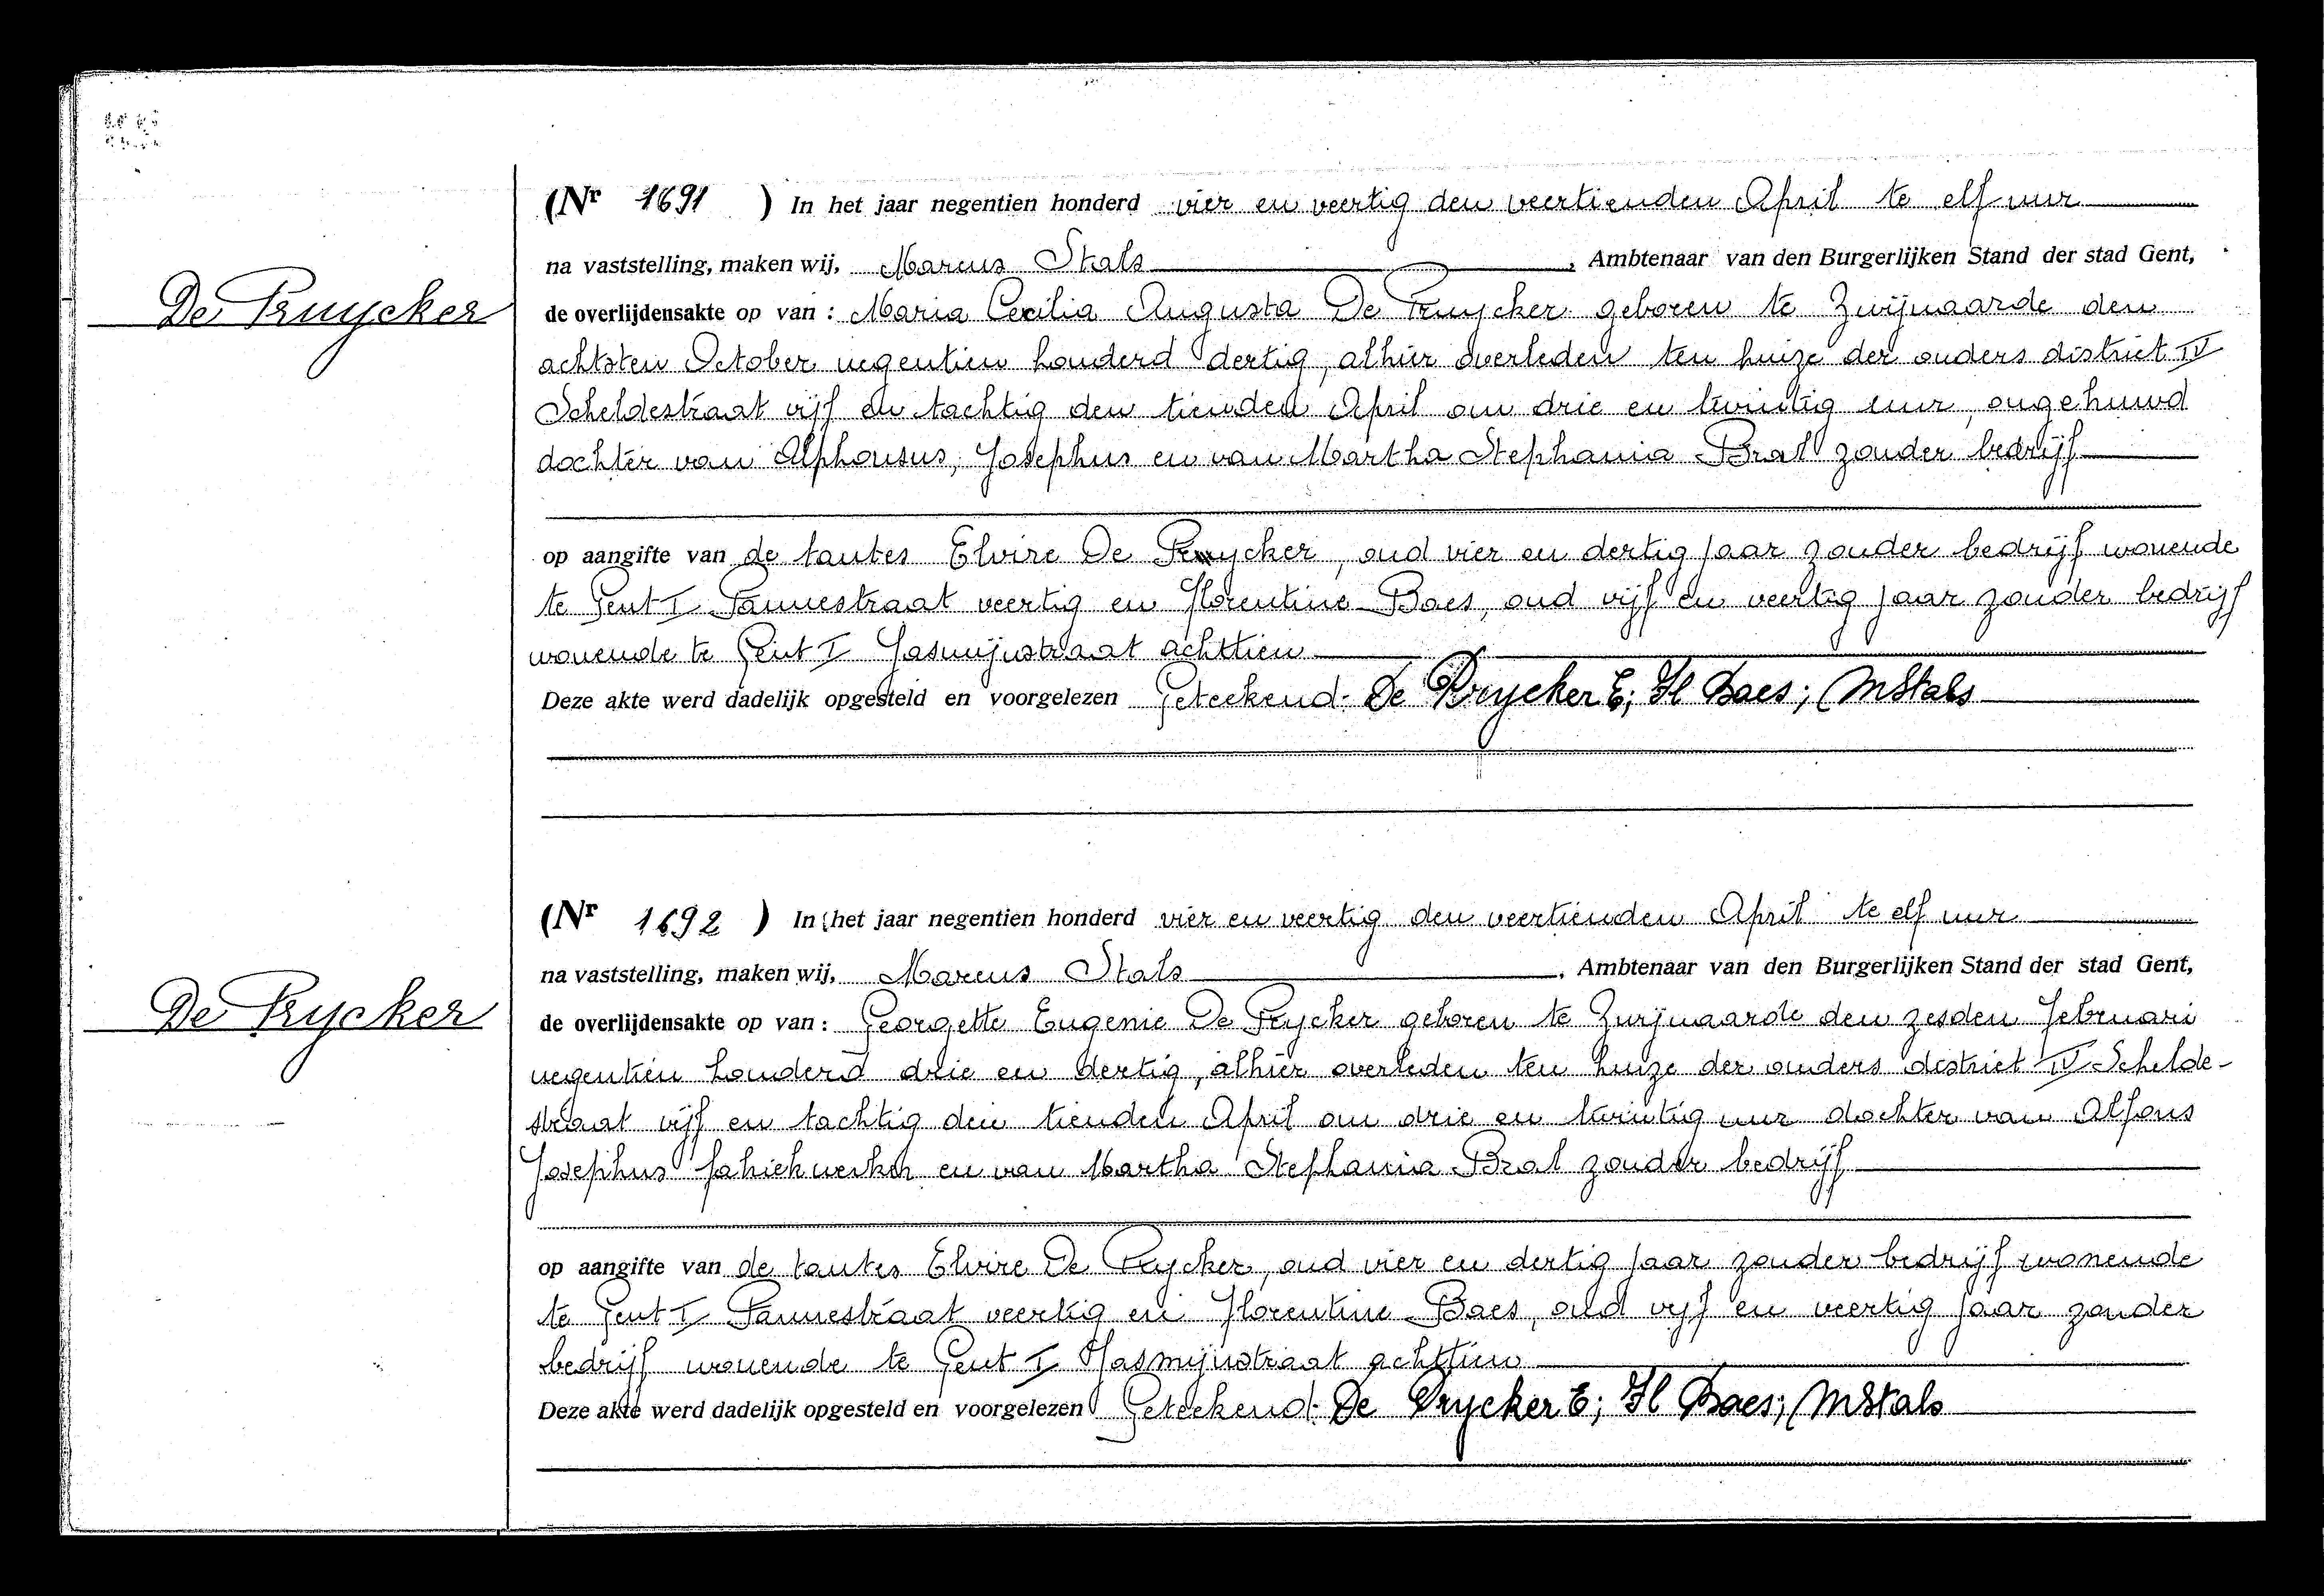 (Nr 1691 ) In het jaar negentien honderd vier en veertig den veertienden April te elf uur
na vaststelling, maken wij, Marcus Stals , Ambtenaar van den Burgerlijken Stand der stad Gent,
De Pruycker
de overlijdensakte op van : Maria Cecilia Augusta De Pruycker geboren te Zwijnaarde den
achtsten October negentien honderd dertig, alhier overleden ten huize der ouders district IV
Scheldestraat vijf en tachtig den tienden April om drie en twintig uur, ongehuwd
dochter van Alphonsus, Josephus en van Martha Stephania Bral zonder bedrijf
op aangifte van de tantes Elvire De Pruycker, oud vier en dertig jaar zonder bedrijf wonende
te Gent I Pannestraat veertig en Florentine Baes, oud vijf en veertig jaar zonder bedrijf
wonende te Gent I Jasmijnstraat achttien
Deze akte werd dadelijk opgesteld en voorgelezen Geteekend: De Pruycker E; Fl Baes; MStals
(Nr 1692 ) In het jaar negentien honderd vier en veertig den veertienden April te elf uur
na vaststelling, maken wij, Marcus Stals , Ambtenaar van den Burgerlijken Stand der stad Gent,
De Prycker
de overlijdensakte op van : Georgette Eugenie De Prycker geboren te Zwijnaarde den zesden Februari
negentien honderd drie en dertig, alhier overleden ten huize der ouders district IV Schelde-
straat vijf en tachtig den tienden April om drie en twintig uur dochter van Alfons
Josephus fabriekwerker en van Martha Stephania Bral zonder bedrijf
op aangifte van de tantes Elvire De Prycker, oud vier en dertig jaar zonder bedrijf wonende
te Gent I Pannestraat veertig en Florentine Baes, oud vijf en veertig jaar zonder
bedrijf wonende te Gent I Jasmijnstraat achttien
Deze akte werd dadelijk opgesteld en voorgelezen Geteekend: De Prycker E; Fl Baes; MStals